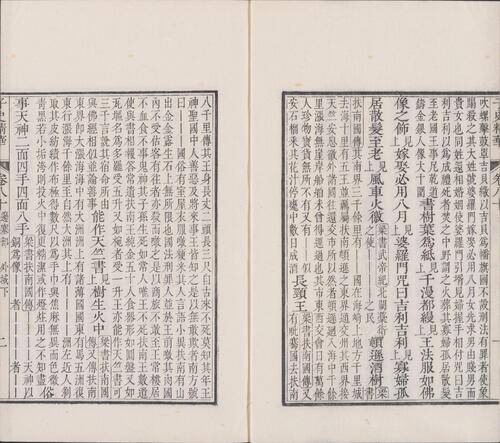 吹螺擊鼓罩吉貝織以吉貝爲幡旗國不設刑法有罪者使象
踏殺之其大姓號婆羅門嫁娶必用八月女先求男由賤男而
貴女也同姓還相婚姻使婆羅門引壻見婦握手相付呪曰吉
利吉利以爲成禮死者焚之中野謂之火葬其寡婦孤居散髮
至老國王事尼乾道
鑄金銀人像大十圍
書樹葉爲紙見上
干漫都縵見上
王法服如佛
像之飾見上
嫁娶必用八月見上
婆羅門呪曰吉利吉利見上
寡婦孤
居散髮至老見上
風車火徼梁書武帝紀北闢藁街
之使————之民
頓遜酒樹梁書
扶南國傳其南界三千餘里有——國在海崎上地方千里城
去海十里有五王並羈屬扶南頓遜之東界通交州其西界接
天竺安息徼外諸國往還交市所以然者頓遜迴入海中千餘
里漲海無崖岸船舶未曾得逕過也其市東西交會日有萬餘
人珍物寶貨無所不有又有——似
安石榴采其花汁停甕中數日成酒
長頸王梁書扶南國傳又
有毗騫國去扶南
八千里傳其王身長丈二頭長三尺自古來不死莫知其年王
神聖國中人善惡及將來事王皆知之是以無敢欺者南方號
曰———國俗有室屋衣服噉粳米其人言語小異扶南有山
出金金露生石上無所限也國法刑罪人並於王前噉其肉國
內不受估客有往者亦殺而噉之是以商旅不敢至王常樓居
不血食不事鬼神其子孫生死如常人唯王不死扶南王數遣
使與書相報答常遺扶南王純金五十人食器形如圓盤又如
瓦塸名爲多羅受五升又如椀者受一升王亦能作天竺書可
三千言說其宿命所由
與佛經相似並論善事
能作天竺書見上
樹生火中梁書扶南國
傳又傳扶南
東界即大漲海海中有大洲洲上有諸薄國國東有馬五洲復
東行漲海千餘里至自然大洲其上有————洲左近人剝
取其皮紡績作布極得數尺以爲手巾與焦麻無異而色微青
黑若小垢洿則投火中復更精潔或作燈炷用之不知盡
俗
事天神二面四手四面八手梁書扶南國傳
銅爲像——者
天神以
——者
子史精華
卷八十
邊塞部
外域下
二